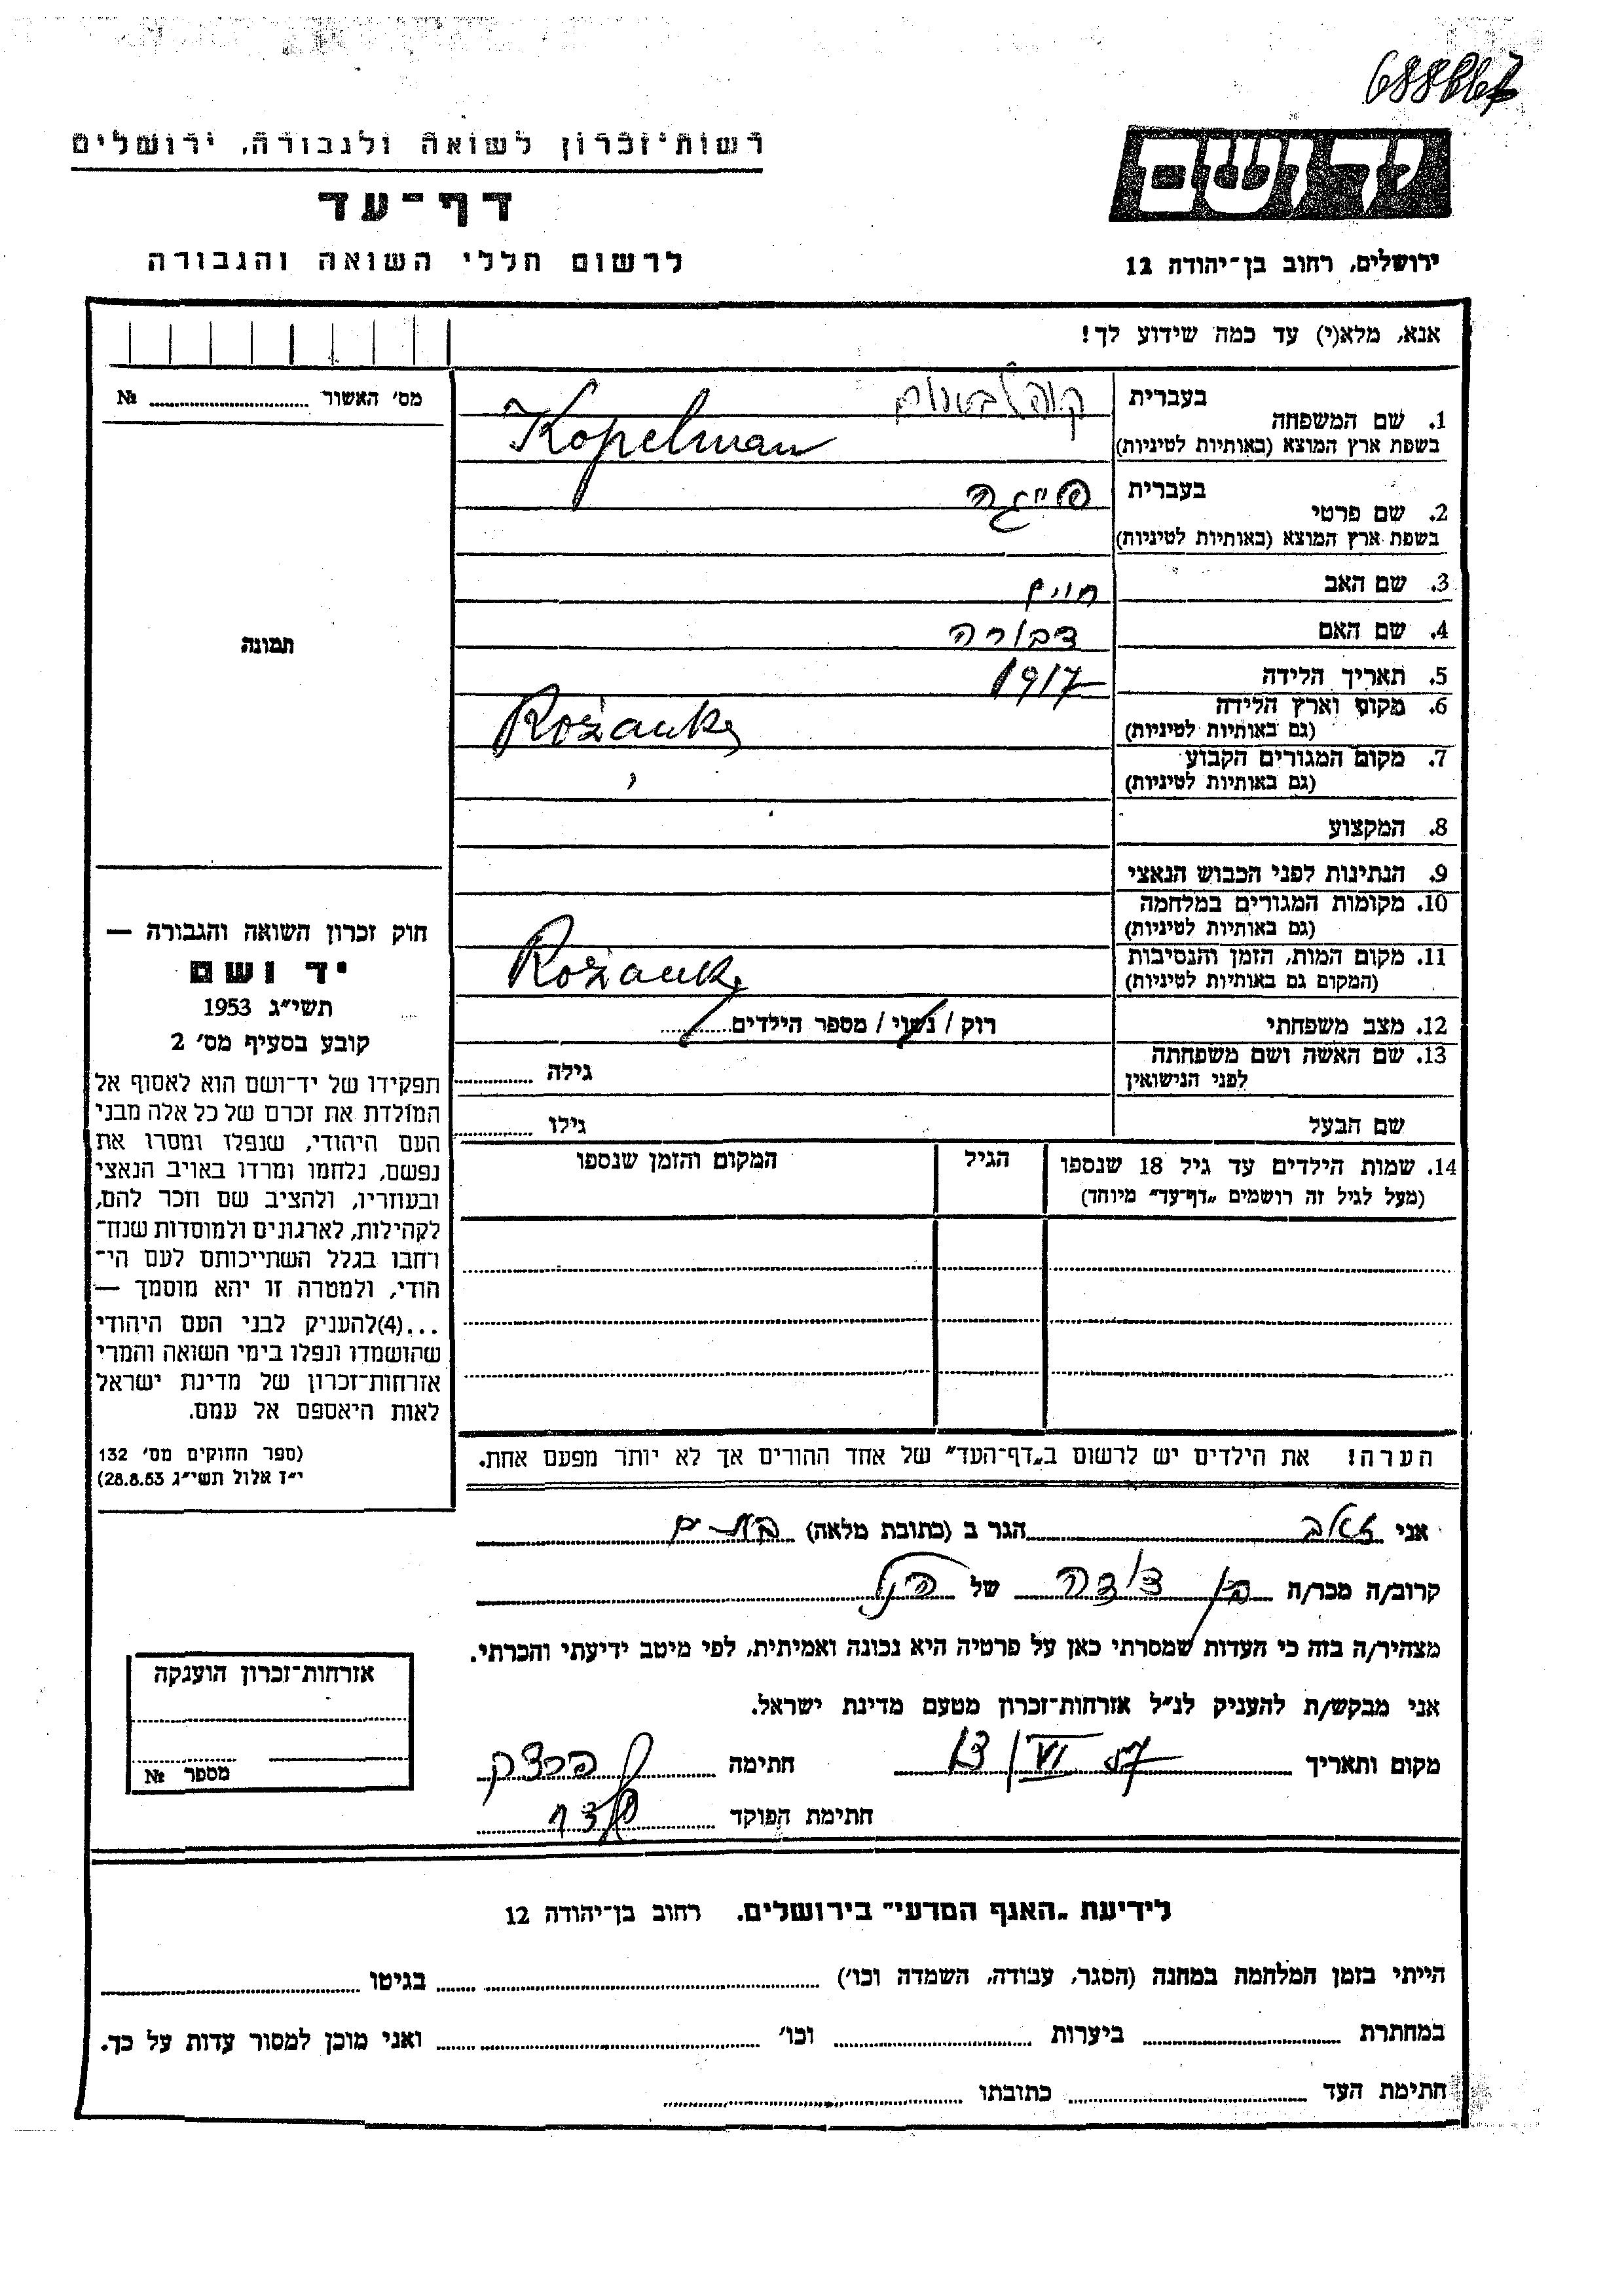 688867
רשות־זכרון לשואה ולגבורה, ירושלים
דף־עד
לרשום חללי השואה והגבורה
יד ושם
ירושלים, רחוב בן־יהודה 12
אנא, מלא(י) עד כמה שידוע לך!
מס׳ האשור № 
1. שם המשפחה
בעברית
בשפת ארץ המוצא (באותיות לטיניות) Kopelman
2. שם פרטי
בעברית פייגה
בשפת ארץ המוצא (באותיות לטיניות)
3. שם האב חיים
4. שם האם דבורה
5. תאריך הלידה 1917
6. מקום וארץ הלידה
(גם באותיות לטיניות) Rożanka
7. מקום המגורים הקבוע
(גם באותיות לטיניות) "
8. המקצוע
9. הנתינות לפני הכבוש הנאצי
10. מקומות המגורים במלחמה
(גם באותיות לטיניות)
11. מקום המות, הזמן והנסיבות
(המקום גם באותיות לטיניות) Rożanka
12. מצב משפחתי רוק / נשוי / מספר הילדים
13. שם האשה ושם משפחתה
לפני הנישואין גילה
שם הבעל גילו
14. שמות הילדים עד גיל 18 שנספו
(מעל לגיל זה רושמים „דף־עד" מיוחד)
הגיל
המקום והזמן שנספו
הערה! את הילדים יש לרשום ב„דף־העד" של אחד ההורים אך לא יותר מפעם אחת.
תמונה
חוק זכרון השואה והגבורה —
יד ושם
תשי״ג 1953
קובע בסעיף מס׳ 2
תפקידו של יד־ושם הוא לאסוף אל
המולדת את זכרם של כל אלה מבני
העם היהודי, שנפלו ומסרו את
נפשם, נלחמו ומרדו באויב הנאצי
ובעוזריו, ולהציב שם וזכר להם,
לקהילות, לארגונים ולמוסדות שנח־
רחבו בגלל השתייכותם לעם הי־
הודי, ולמטרה זו יהא מוסמך —
...(4)להעניק לבני העם היהודי
שהושמדו ונפלו בימי השואה והמרי
אזרחות־זכרון של מדינת ישראל
לאות היאספם אל עמם.
(ספר החוקים מס׳ 132
י״ז אלול תשי״ג 28.8.53)
אני זאב הגר ב (כתובת מלאה) בת-ים
קרוב/ה מכר/ה בן דודה של הנ״ל
מצהיר/ה בזה כי העדות שמסרתי כאן על פרטיה היא נכונה ואמיתית, לפי מיטב ידיעתי והכרתי.
אני מבקש/ת להעניק לנ״ל אזרחות־זכרון מטעם מדינת ישראל.
מקום ותאריך 13/VI 57 חתימה
חתימת הפוקד
אזרחות־זכרון הוענקה
מספר №
לידיעת „האגף המדעי" בירושלים. רחוב בן־יהודה 12
הייתי בזמן המלחמה במחנה (הסגר, עבודה, השמדה וכו׳) בגיטו
במחתרת ביערות וכו׳ ואני מוכן למסור עדות על כך.
חתימת העד כתובתו